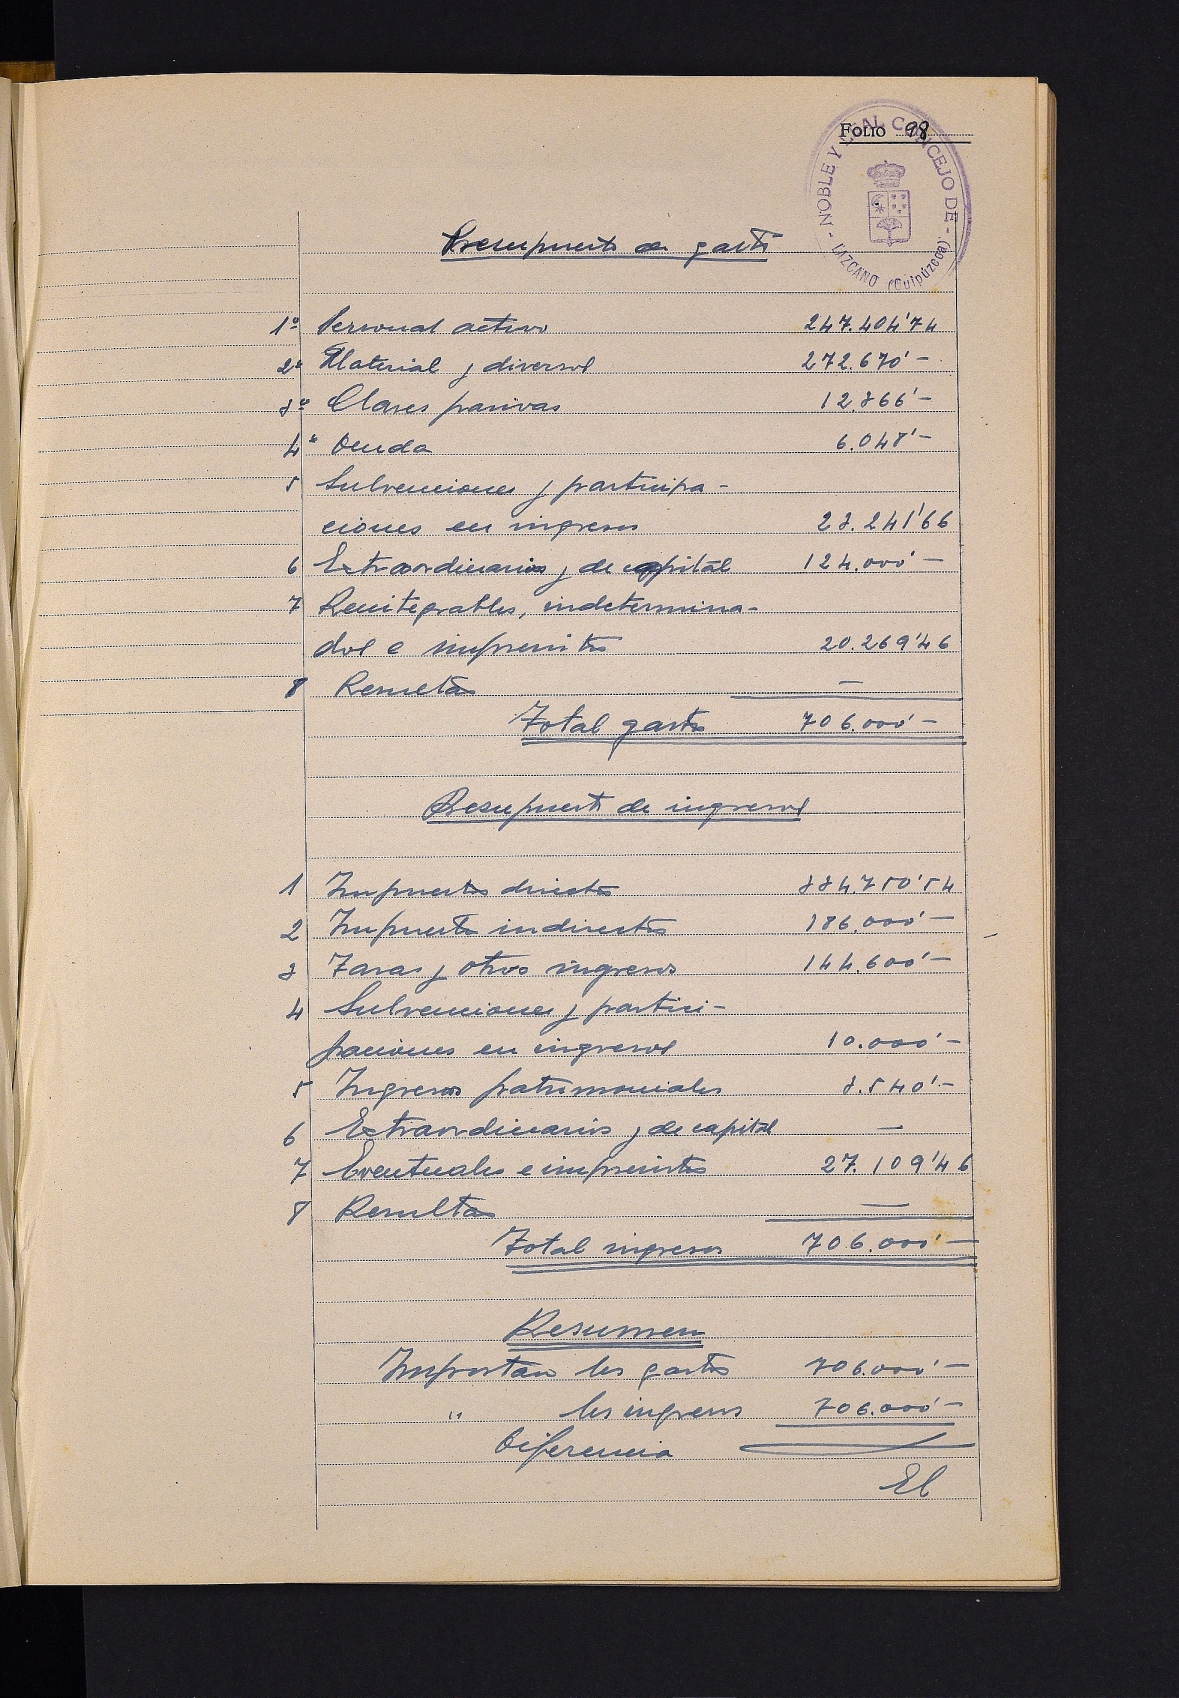 FOLIO 98
NOBLE Y LEAL CONCEJO DE
LAZCANO (Guipúzcoa)
Presupuesto de gastos
1º Personal activo 247.404'74
2º Material y diversos 272.670'-
3º Clases pasivas 12.366'-
4º Deuda 6.048'-
5 Subvenciones y participa-
ciones en ingresos 23.241'66
6 Extraordinarios y de capital 124.000'-
7 Reintegrables, indetermina-
dos e imprevistos 20.269'46
8 Resultas —
Total gastos 706.000'-
Presupuesto de ingresos
1 Impuestos directos 334.750'54
2 Impuestos indirectos 186.000'-
3 Tasas y otros ingresos 144.600'-
4 Subvenciones y partici-
paciones en ingresos 10.000'-
5 Ingresos patrimoniales 3.540'-
6 Extraordinarios y de capital —
7 Eventuales e imprevistos 27.109'46
8 Resultas —
Total ingresos 706.000'-
Resumen
Importan los gastos 706.000'-
" los ingresos 706.000'-
Diferencia —
El